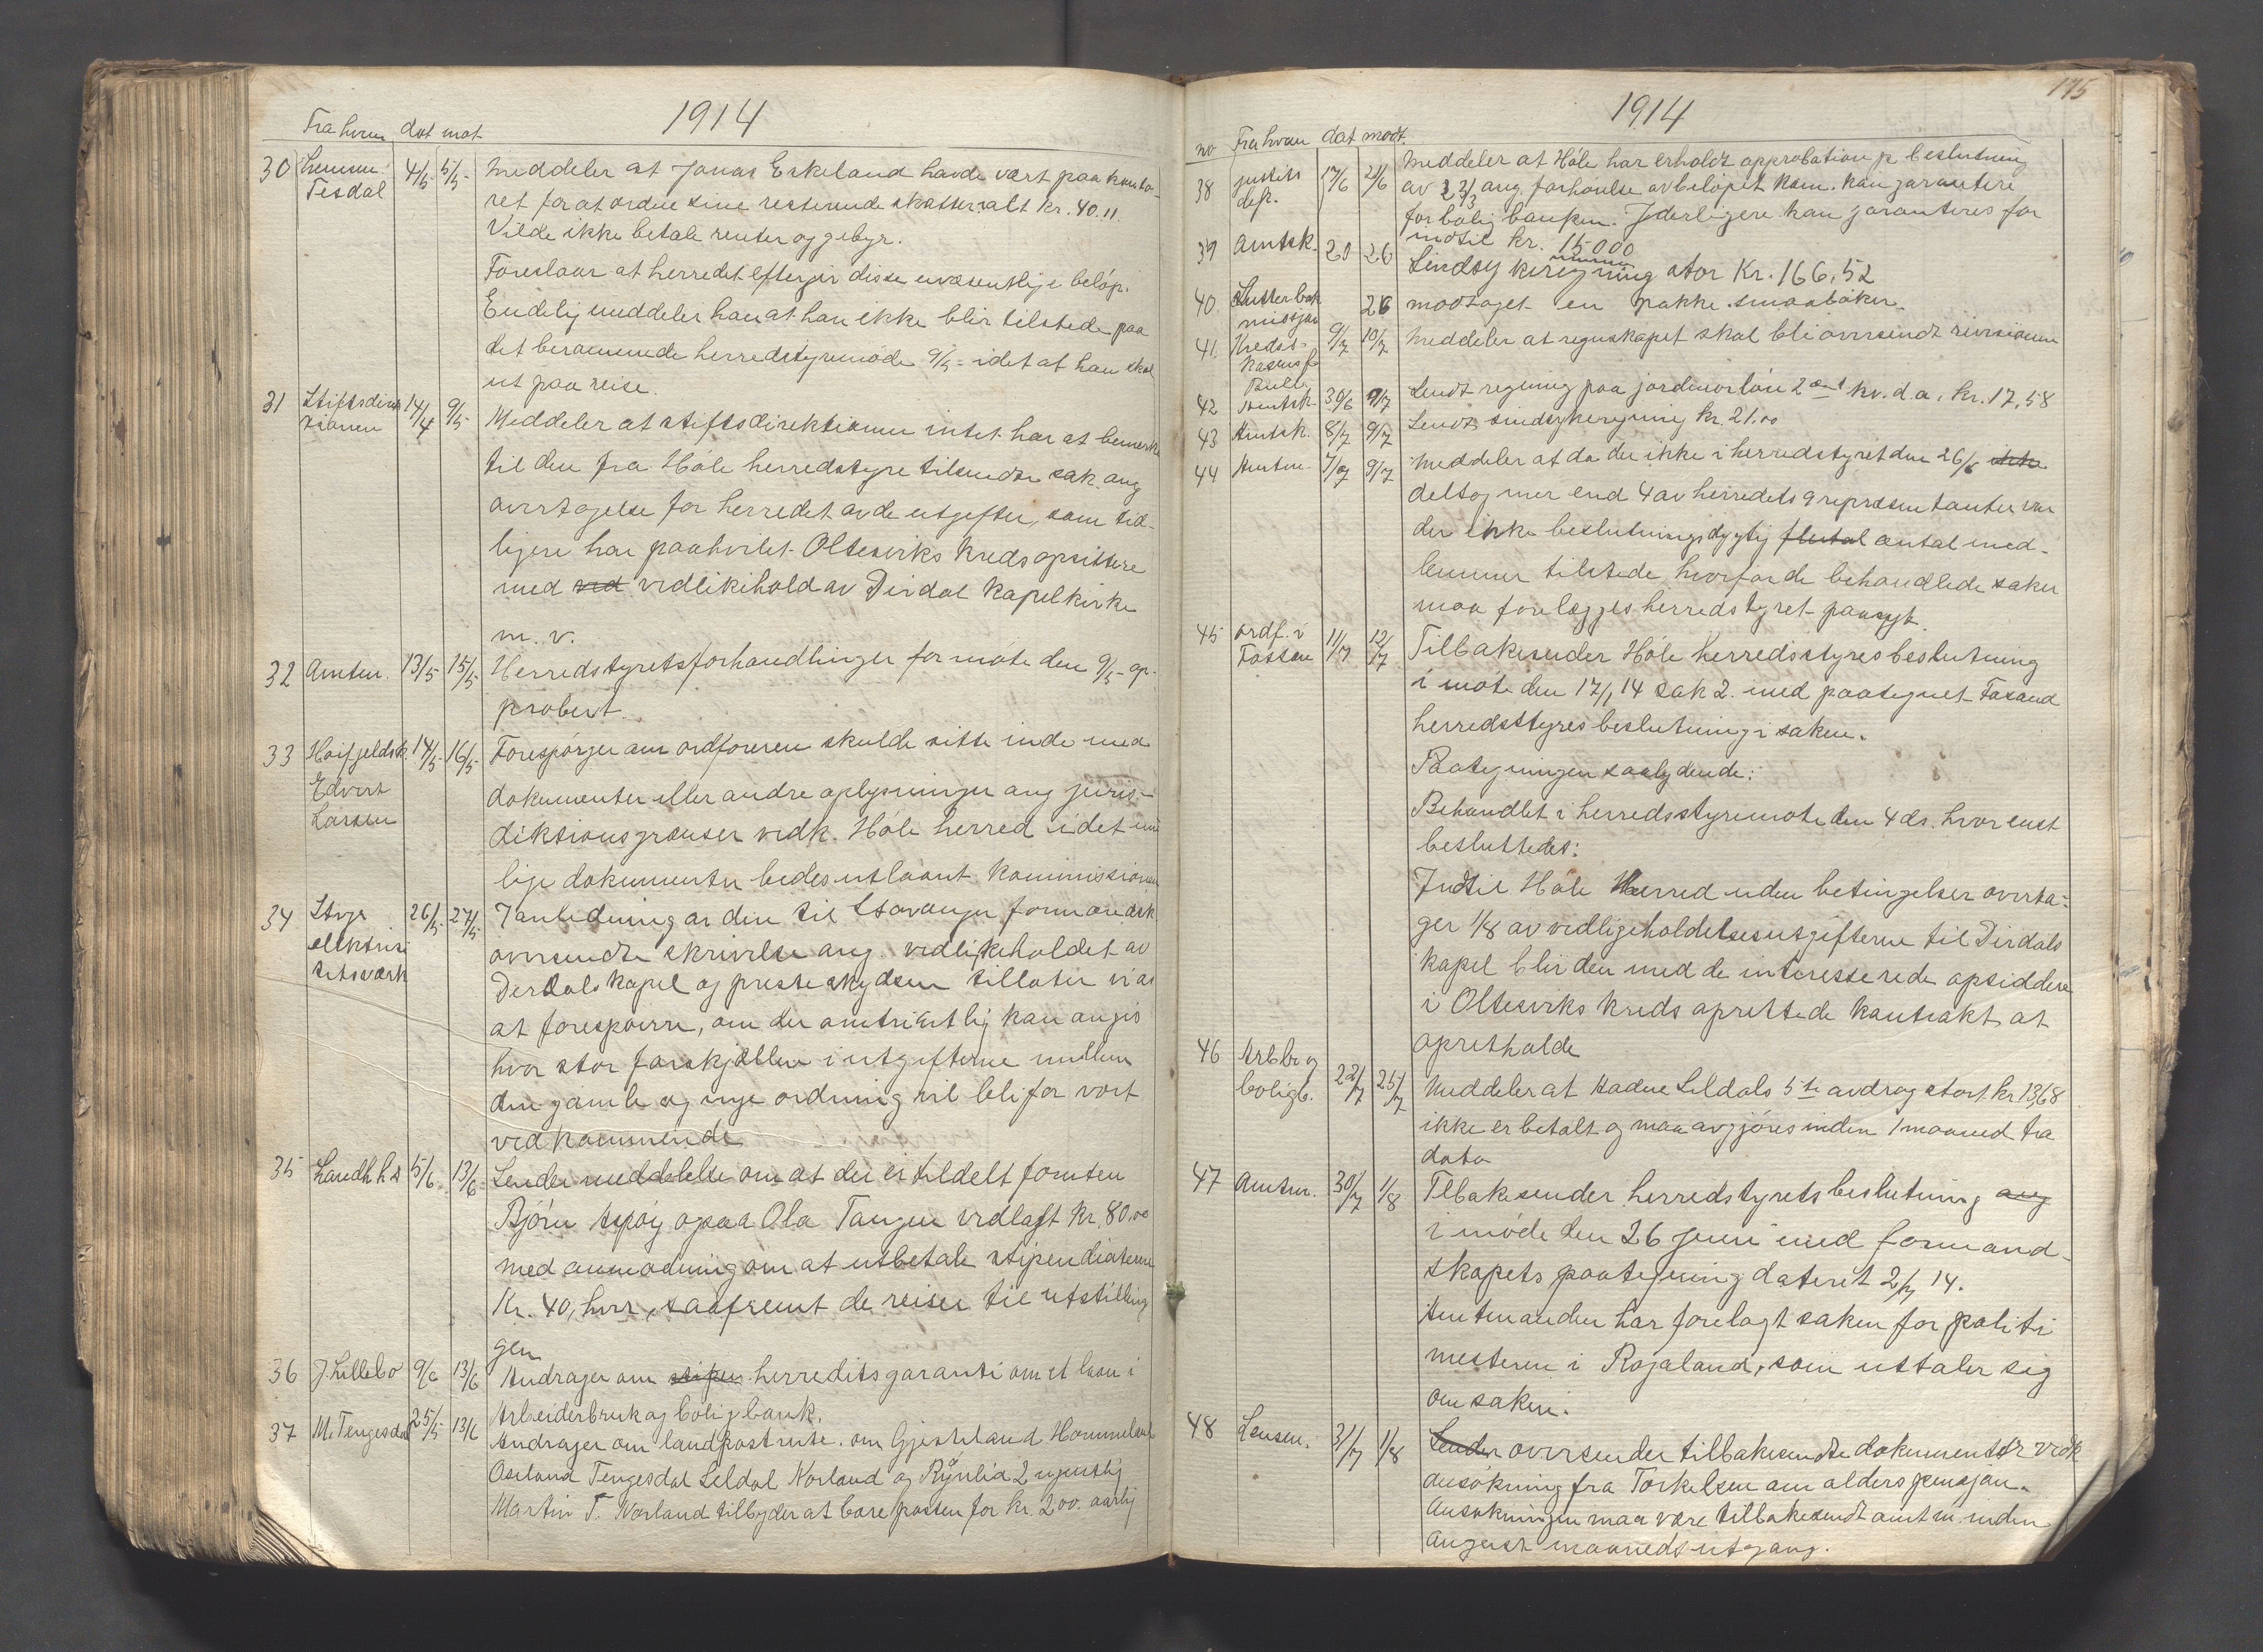 1914
Fra hvem dat mot
30 Lensm. 4/5 5/5 Meddeler at Jonas Eskeland havde vært paa konto-
Tesdal ret for at ordne sine resterende skatter: alt kr. 40.11.
Vilde ikke betale renter og gebyr.
Foreslaar at herredet eftergir disse uvæsentlige beløp.
Endelig meddeler han at han ikke blir tilstede paa
det berammede herredstyremøde 9/5 - idet at han skal
ut paa reise.
31 Stiftsdirek 14/4 9/5 Meddeler at stiftsdirektionen intet har at bemerke
tionen til den fra Høle herredstyre tilsendte sak ang
overtagelse for herredet av de utgifter, som tid-
ligere har paahvilet Oltesviks kreds opsittere
med ved vedlikehold av Dirdal kapelkirke
m. v.
32 Amtm. 13/5 15/5 Herredstyretsforhandlinger for møte den 9/5 - ap-
probert.
33 Høifjeldsk. 14/5 16/5 Forespørger om ordføreren skulde sitte inde med
Edvert dokumenter eller andre oplysninger ang juris-
Larsen diktionsgrænser vedk. Høle herred i det mu
lige dokumenter bedes utlaant kommissionen
34 Stvgr 26/5 27/5 I anledning av den til Stavanger formannsk
elektrisi oversendte skrivelse ang. vedlikeholdet av
tetsværk Derdals kapel og presteskydsen tillater vi os
at forespørre, om der omtrientlig kan angis
hvor stor forskjællen i utgifterne mellem
den gamle og nye ordning vil bli for vort
vedkommende
35 Landh h s 5/6 13/6 Sender meddelelse om at der er tildelt fomten
Bjørn Aspøy opaa Ola Tangen vedlagt kr. 80,00
med anmodning om at utbetale stipendiaterne
Kr. 40, hver, saafremt de reiser til utstilling
gen
36 J. Lillebø 9/6 13/6 Andrager om stipen herredits garanti om et laan i
Arbeiderbruk og boligbank.
37 M. Tengesdal 25/5 13/6 Andrager om landpostrute. om Gjesteland Hommeland
Oseland Tengesdal Seldal Norland og Rynlid 2 ugentlig
Martin T. Norland tilbyder at bare posten for kr. 200. aarlig
175
1914
no Fra hvem dat modt.
38 Justits 17/6 21/6 Meddeler at Høle har erholdt approbation p beslutning
dep. av 21/3 ang. forhøielse av beløpet kom. kan garantere
for bolig banken. Yderligere kan garanteres for
indtil kr. 15000
39 Amtsk. 20 26 Sindsykeregning stor Kr. 166,52
40. 26 modtaget en pakke smaabøker
41. Kredit- 9/7 10/7 Meddeler at regnskapet skal bli oversendt revisionen
42 Amtsk. 30/6 9/7 Sendt regning paa jordmorløn 2det kv. d.a. Kr. 17,58
43 Amtsk. 8/7 9/7 Sendt sindsykeregning kr. 21.00
44 Amtm. 7/7 9/7 Meddeler at da der ikke i herredstyret den 26/6 ikke
deltog mer end 4 av herredets 9 repræsentanter var
der ikke beslutningsdygtig flertal antal med-
lemmer tilstede, hvorfor de behandlede saker
maa forelægges herredstyret paanyt.
45 ordf. i 11/7 12/7 Tilbakesender Høle herredsstyres beslutning
Fossan i møte den 17/1 14 sak 2. med paategnet Fosand
herredsstyres beslutning i saken.
Paategningen saalydende:
Behandlet i herredsstyremøte den 4 ds. hvor enst
besluttedes:
Indtil Høle Herred uden betingelser overta-
ger 1/8 av vedligeholdelsesutgifterne til Dirdals
kapel blir den med de interesserede opsiddere
i Oltesviks kreds oprettede kontrakt at
opretholde
46 Arbbr og 22/7 25/7 Meddeler at Hadne Seldals 5te avdrag stort kr 13,68
boligb. ikke er betalt og maa avgjøres inden 1 maaned fra
dato
47 Amtm. 30/7 1/8 Tlbakesender herredstyrets beslutning ang
i møde den 26 juni med formand-
skapets paategning dateret 2/7 14.
Amtmanden har forelagt saken for politi
mesteren i Rogaland, som uttaler sig
om saken.
48 Lensm. 31/7 1/8 Sender oversender tilbakesendte dokumenter vedk
ansøkning fra Torkelsen om alderspensjon.
Ansøkningen maa være tilbakesendt amtm. inden
August maaneds utgang.